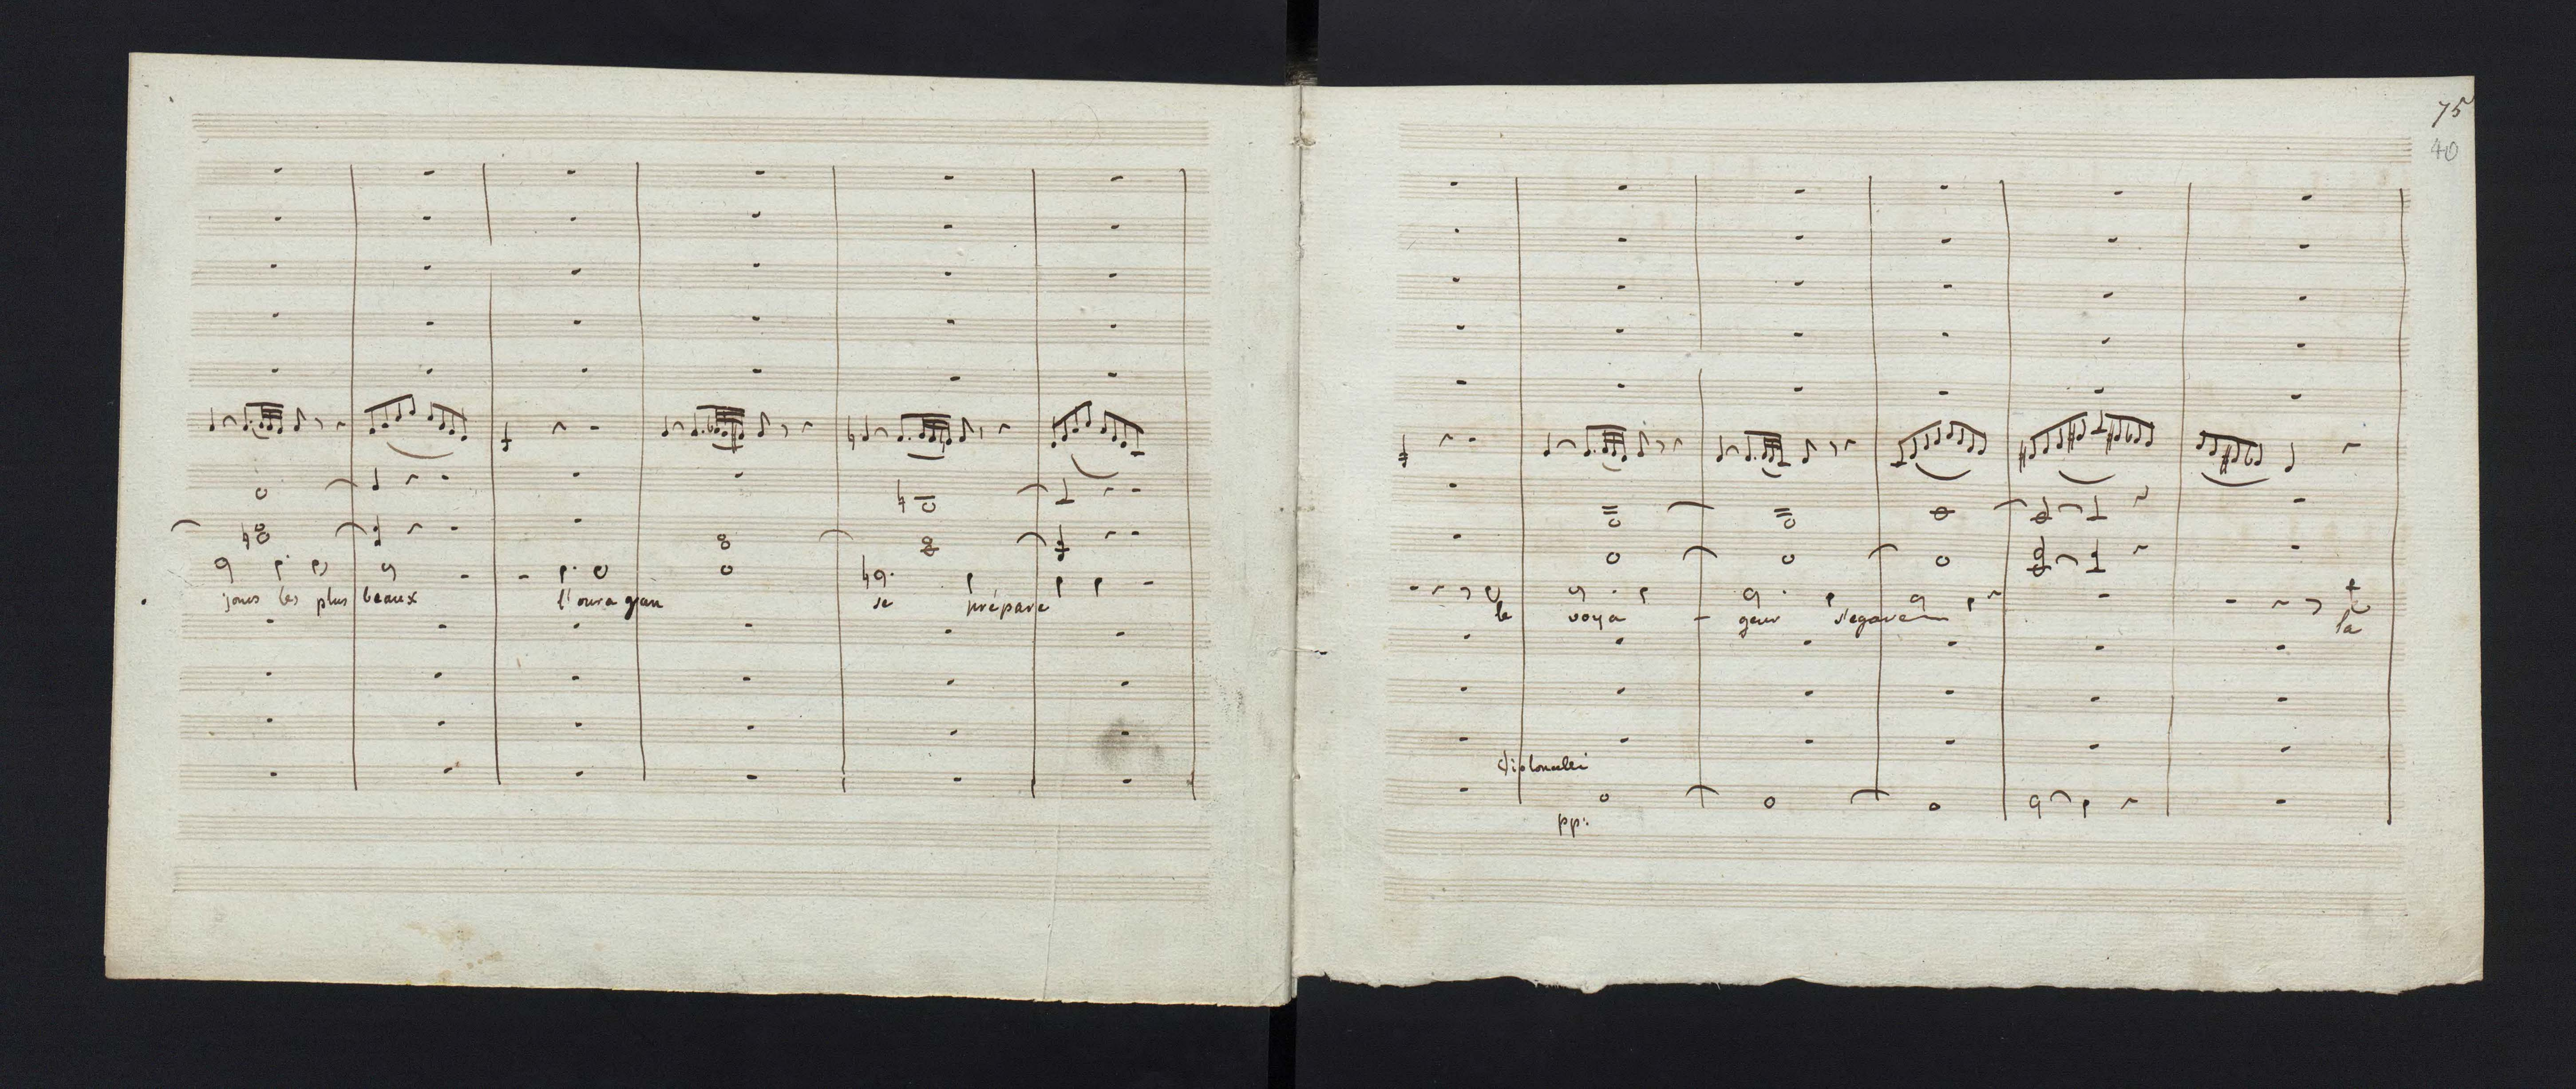 jours les plus beaux l'ouragan se prépare
75
40
le voya - geur s'egare la
Violoncelli
pp: